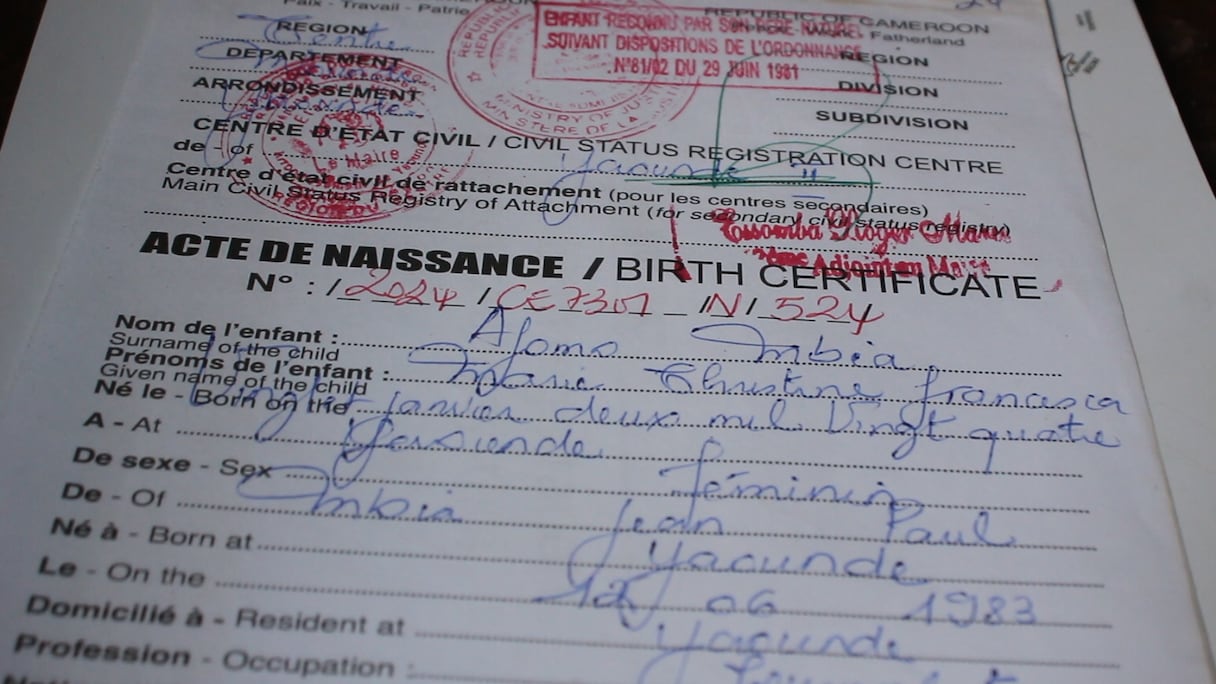 Paix - Travail - Patrie
REPUBLIC OF CAMEROON
Fatherland
ENFANT RECONNU PAR SON PERE NATUREL
SUIVANT DISPOSITIONS DE L'ORDONNANCE
N°81/02 DU 29 JUIN 1981
RÉGION Centre
REGION
DEPARTEMENT
DIVISION
ARRONDISSEMENT
SUBDIVISION
MINISTRY OF JUSTICE
MINISTERE DE LA JUSTICE
Le Maire
CENTRE D'ETAT CIVIL / CIVIL STATUS REGISTRATION CENTRE
de - of Yaounde II
Centre d'état civil de rattachement (pour les centres secondaires)
Main Civil Status Registry of Attachment (for secondary civil status registry)
Essomba Roger
Adjoint au Maire
ACTE DE NAISSANCE / BIRTH CERTIFICATE
N° : / 2024 / CE7301 / N / 524
Nom de l'enfant : Afomo Mbia
Surname of the child
Prénoms de l'enfant : Marie Christine francesca
Given name of the child
Né le - Born on the janvier deux mil Vingt quatre
A - At Yaounde
De sexe - Sex féminin
De - Of Mbia Jean Paul
Né à - Born at Yaounde
Le - On the 06 1983
Domicilié à - Resident at Yaounde
Profession - Occupation :